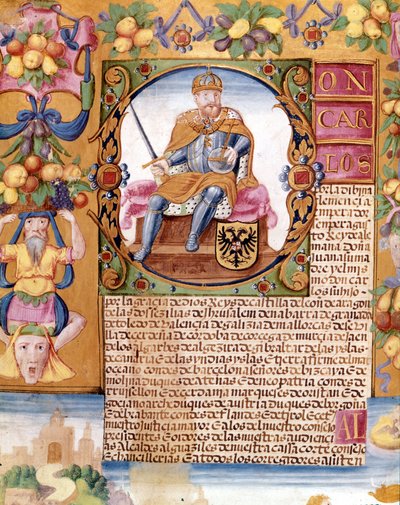 ON
CAR
LOS
por la divin
clemencia e
empera do
semper agu
to Rey de ale
mana Doña
Juana su ma
y el mis
mo don car
los su hijo
por la gracia de dios Reys de castilla de leon de aragon
de las dos sezilias de Jherusalem de nabarra de granada
de toledo de valencia de galizia de mallorcas de sevi
lla de cerdeña de cordoba de corcega de murcia de jaen
de los algarbes de algezira de gibraltar de las yslas
de canaria de las yndias yslas e tierra firme del mar
oceano condes de barcelona señores de bizcaya e de
molina duques de atenas e de neopatria condes de
ruysellon e de cerdania marqueses de oristan e de
gociano archiduques de austria duques de borgoña
e de brabante condes de flandes e de tirol etc
AL
nuestro justicia mayor e a los del nuestro consejo
presidentes e oydores de las nuestras audiencias
Alcaldes alguaziles de la nuestra casa corte consejo
e chancillerias e a todos los corregidores asisten